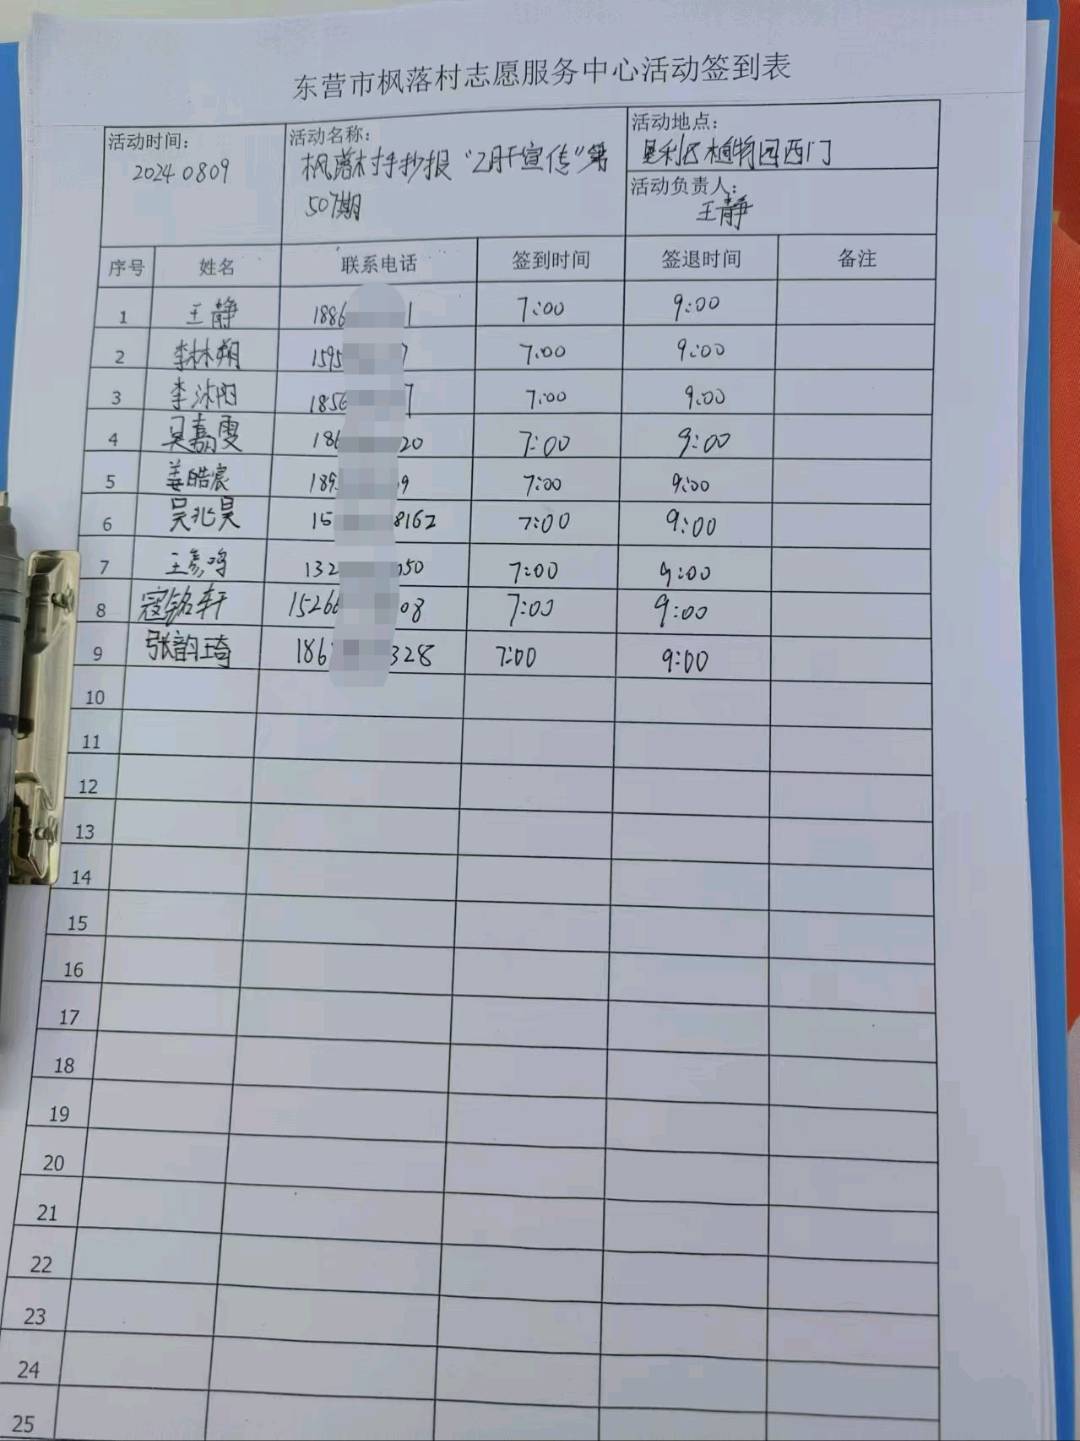 东营市枫落村志愿服务中心活动签到表
活动时间：
2024.0809
活动名称：
枫落村手抄报“乙肝宣传”第
507期
活动地点：
垦利区植物园西门
活动负责人：
王静
序号 姓名 联系电话 签到时间 签退时间 备注
1 王静 1886 1 7:00 9:00
2 李林朔 1595 7 7:00 9:00
3 李沐阳 1856 7 7:00 9:00
4 吴嘉雯 186 20 7:00 9:00
5 姜皓宸 189 9 7:00 9:00
6 吴兆昊 15 8162 7:00 9:00
7 王彦鸣 132 050 7:00 9:00
8 寇铭轩 1526 08 7:00 9:00
9 张韵琦 186 328 7:00 9:00
10
11
12
13
14
15
16
17
18
19
20
21
22
23
24
25